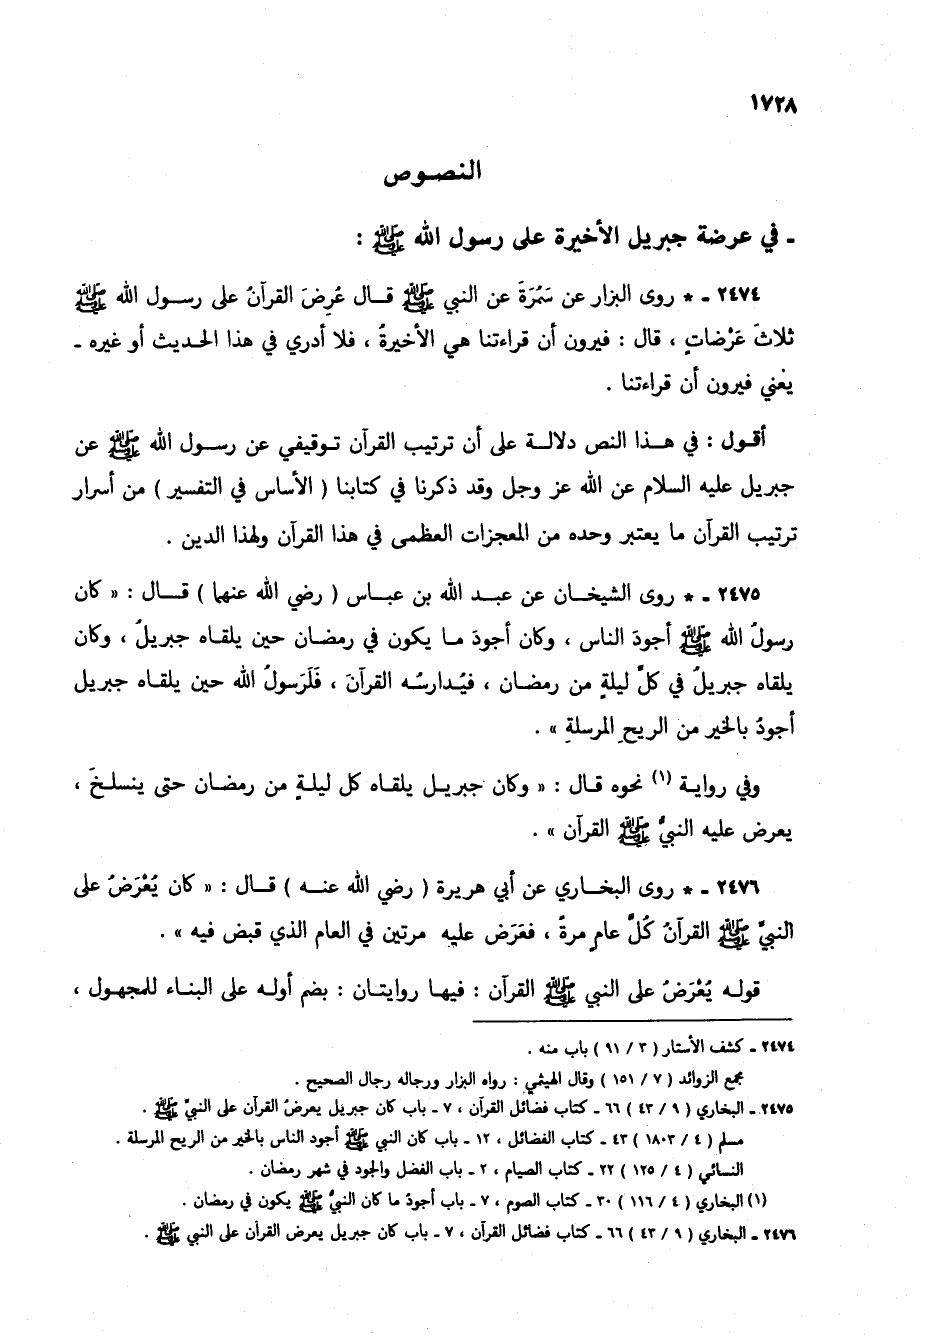 ١٧٢٨
النصوص
ـ في عرضة جبريل الأخيرة على رسول الله ﷺ :
٢٤٧٤ ـ * روى البزار عن سَمُرَةَ عن النبي ﷺ قال عُرِضَ القرآنُ على رسول الله ﷺ
ثلاثَ عَرْضاتٍ ، قال : فيرون أن قراءتنا هي الأخيرةُ ، فلا أدري في هذا الحديث أو غيره ـ
يعْني فيرون أن قراءتنا .
أقول : في هذا النص دلالة على أن ترتيب القرآن توقيفي عن رسول الله ﷺ عن
جبريل عليه السلام عن الله عز وجل وقد ذكرنا في كتابنا ( الأساس في التفسير ) من أسرار
ترتيب القرآن ما يعتبر وحده من المعجزات العظمى في هذا القرآن ولهذا الدين .
٢٤٧٥ ـ * روى الشيخان عن عبد الله بن عباس ( رضي الله عنهما ) قال : « كان
رسولُ الله ﷺ أجودَ الناس ، وكان أجودَ ما يكون في رمضان حين يلقاه جبريلُ ، وكان
يلقاه جبريلُ في كلِّ ليلةٍ من رمضان ، فيُدارسُه القرآنَ ، فَلَرَسولُ الله حين يلقاه جبريل
أجودُ بالخير من الريحِ المرسلةِ » .
وفي رواية (١) نحوه قال : « وكان جبريل يلقاه كل ليلةٍ من رمضان حتى ينسلخَ ،
يعرض عليه النبيُّ ﷺ القرآن » .
٢٤٧٦ ـ * روى البخاري عن أبي هريرة ( رضي الله عنه ) قال : « كان يُعْرَضُ على
النبيِّ ﷺ القرآنُ كُلَّ عامٍ مرةً ، فعَرَض عليه مرتين في العام الذي قبض فيه » .
قوله يُعْرَضُ على النبي ﷺ القرآن : فيها روايتان : بضم أوله على البناء للمجهول ،
٢٤٧٤ ـ كشف الأستار ( ٣ / ٩١ ) باب منه .
مجمع الزوائد ( ٧ / ١٥١ ) وقال الهيثمي : رواه البزار ورجاله رجال الصحيح .
٢٤٧٥ ـ البخاري ( ٩ / ٤٣ ) ٦٦ ـ كتاب فضائل القرآن ، ٧ ـ باب كان جبريل يعرضُ القرآن على النبيِّ ﷺ .
مسلم ( ٤ / ١٨٠٣ ) ٤٣ ـ كتاب الفضائل ، ١٢ ـ باب كان النبي ﷺ أجود الناس بالخير من الريح المرسلة .
النسائي ( ٤ / ١٢٥ ) ٢٢ ـ كتاب الصيام ، ٢ ـ باب الفضل والجود في شهر رمضان .
(١) البخاري ( ٤ / ١١٦ ) ٣٠ ـ كتاب الصوم ، ٧ ـ باب أجودُ ما كان النبيُّ ﷺ يكون في رمضان .
٢٤٧٦ ـ البخاري ( ٩ / ٤٣ ) ٦٦ ـ كتاب فضائل القرآن ، ٧ ـ باب كان جبريل يعرض القرآن على النبي ﷺ .